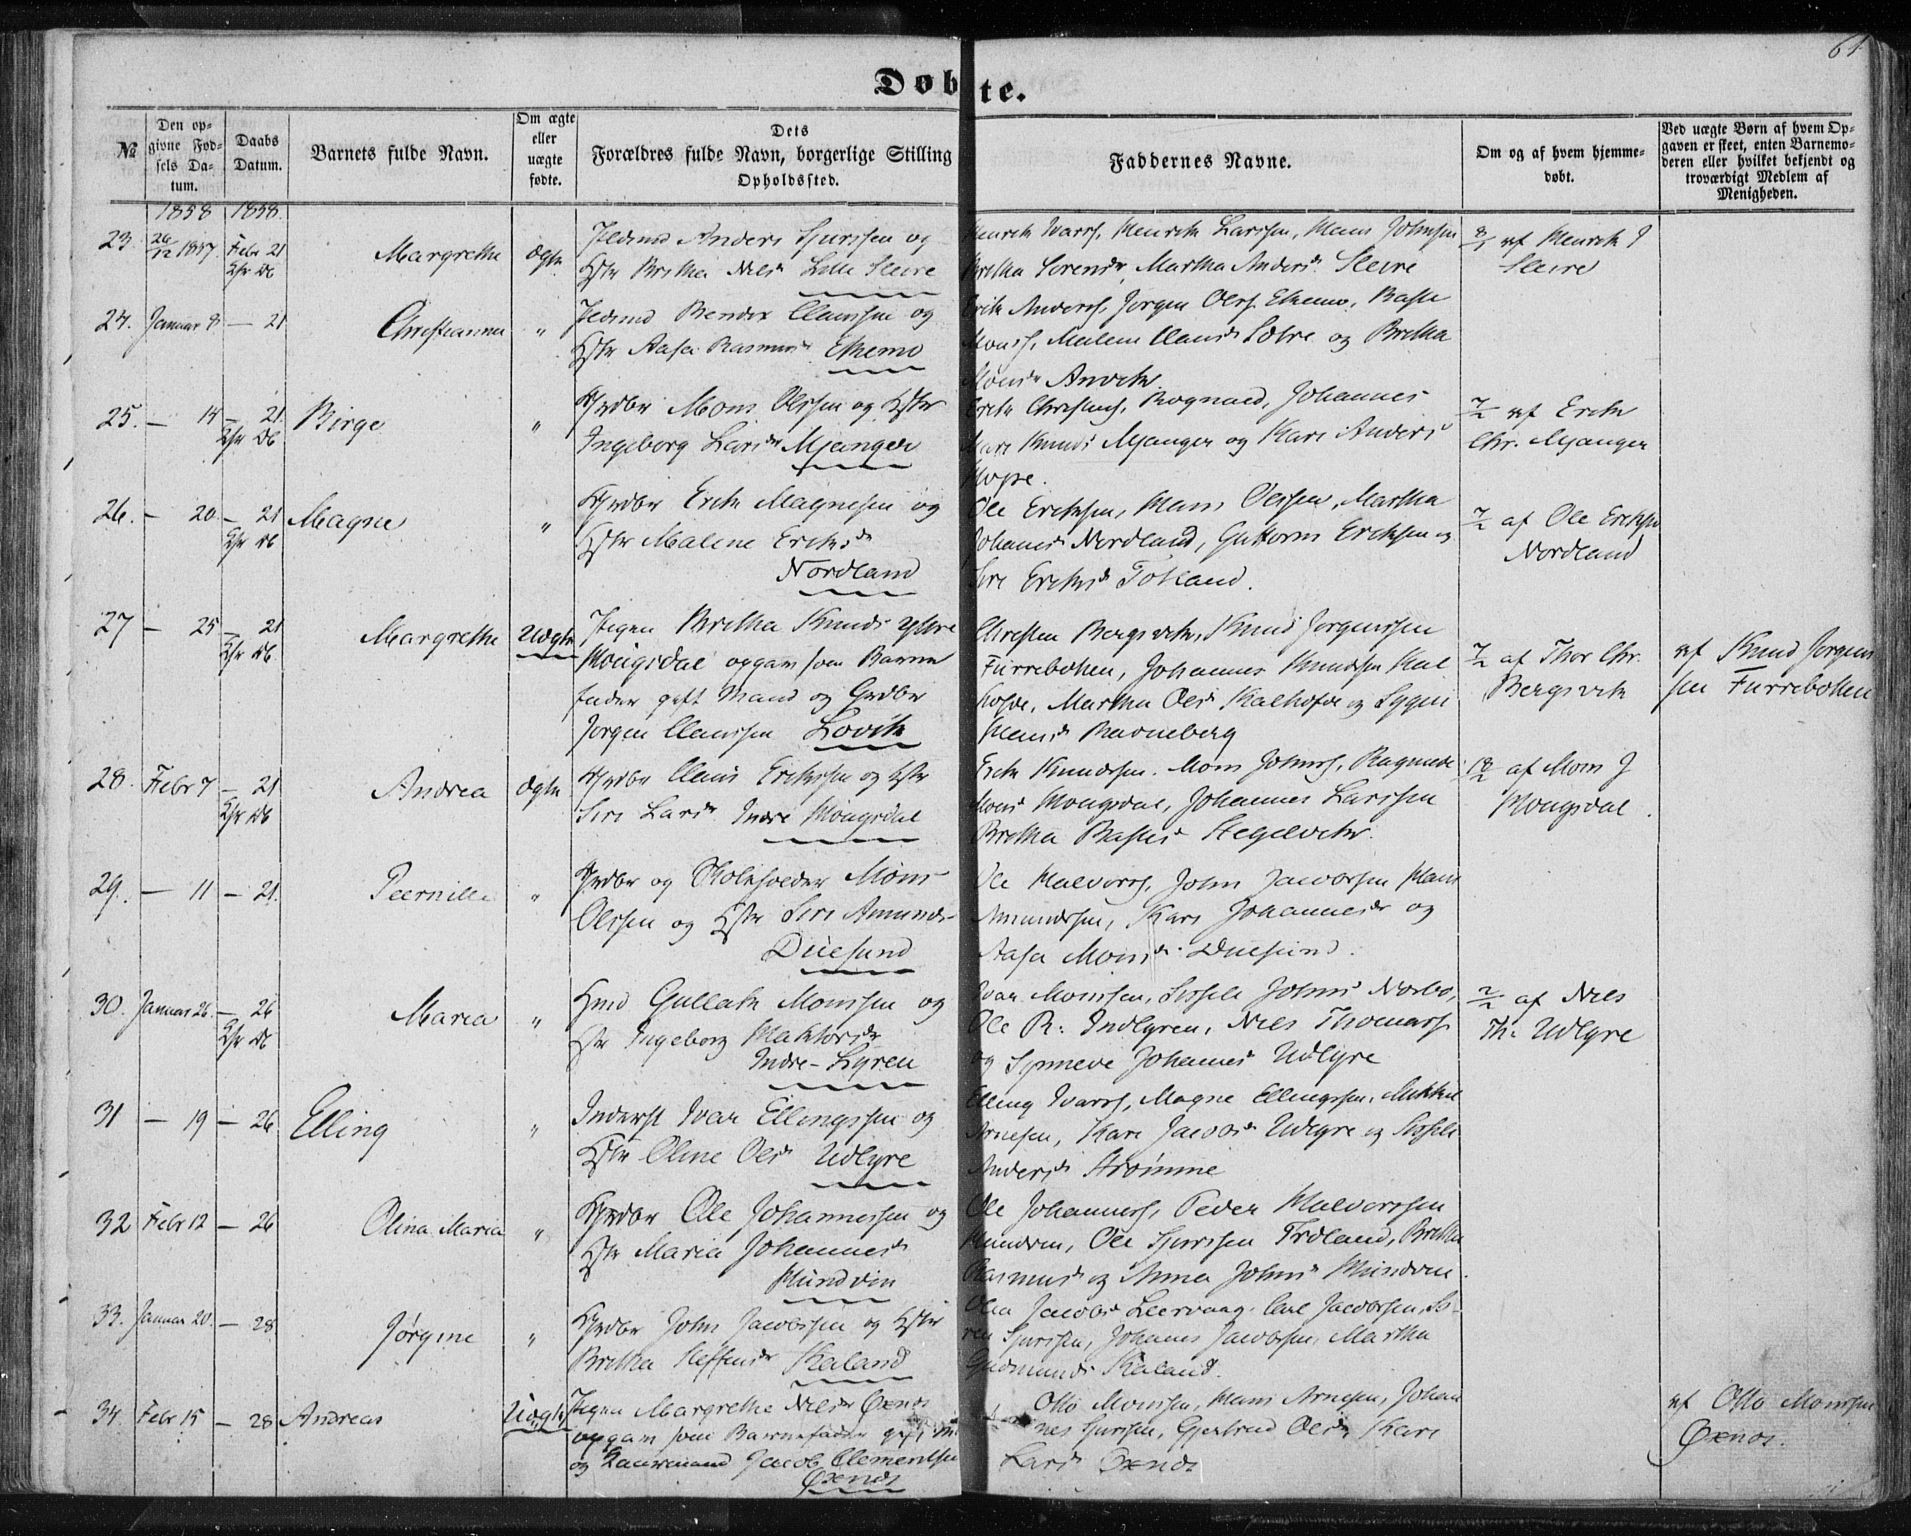 61
Døbte.
№
Den op-
givne Fød-
sels Da-
tum.
Daabs
Datum.
Barnets fulde Navn.
Om ægte
eller
uægte
fødte.
Dets
Forældres fulde Navn, borgerlige Stilling
Opholdssted.
Faddernes Navne.
Om og af hvem hjemme-
døbt.
Ved uægte Børn af hvem Op-
gaven er skeet, enten Barnemo-
deren eller hvilket bekjendt og
troværdigt Medlem af
Menigheden.
1858 1858.
23. 26/12 1857 Febr 21 Margrethe ægte Anders Sjurssen og
Britha Niels Lille Sleire
Henrik Ivarss, Henrik Larssen, Mons Johnsen
Britha Sørens, Martha Anders Sleire
af Henrik J
Sleire
24. Januar 8 — 21 Christianna „ Bendix Clausen og
Aasa Rasmus Ekemo
Erik Anderss, Jørgen Olss Ekemo, Baste
Monss, Malene Claus og Britha
Mons Anvik
25. — 14 — 21. Birge „ Mons Olssen og
Ingeborg Lars Mjanger
Erik Christens, Rognald, Johannes
Knuds Mjanger og Kari Anders
Hope.
7/2 af Erik
Chr. Mjanger
26. — 20 — 21 Magne „ Erik Magnesen og
Malene Eriks
Nordland
Ole Eriksen, Mons Olssen, Martha
Johannes Nordland, Guttorm Eriksen og
Siri Eriks Totland.
7/2 af Ole Eriksen
Nordland
27 — 25 — 21 Margrethe Uægte Pigen Britha Knuds ytre
Mongsdal opgav som Barne
fader gift Mand og
Jørgen Clausen Løvik
Christen Bergsvik, Knud Jørgenssen
Furrebotten, Johannes Knudsen Kal
hofde, Martha Ols Kalhofde og
Ravneberg
7/2 af Thor Chr.
Bergsvik
af Knud Jørgens
sen Furrebotten
28. Febr 7 — 21 Andrea ægte Claus Erikssen og
Siri Lars Indre Mongsdal
Erik Knudssen. Mons Johnss, Ragnilde
Mons Mongsdal, Johannes Larssen
Britha Bastes Hegelvik
18/2 af Mons J
Mongsdal.
29. — 11 — 21. Peernille „ og Skoleholder Mons
Olssen og Siri Amunds
Duesund
Ole Halvorss, John Jacobsen Hans
Amundssen, Kari Johannes og
Aasa Mons Duesund.
30. Januar 26. — 26 Maria „ Gullak Monssen og
Ingeborg
Indre-Lyren
Ivar Monssen, Sissele Johns Norbø,
Ole R: Indlyren, Niels Thomass
og Synneve Johannes Udlyre
2/2 af Niels
Th: Udlyre
31 — 19 — 26 Elling „ Inderst Ivar Ellingssen og
Oline Ols Udlyre
Elling Ivarss, Magne Ellingssen, Mikkel
Arnesen, Kari Jacobs Udlyre og Sissele
Anders Strømme
32 Febr 12 — 26 Olina Maria „ Ole Johannessen og
Maria Johannes
Mundvin
Ole Johanness, Peder Halvorssen
Mundvin, Ole Sjurssen Troland, Britha
Rasmus og Anna Johns Mundvin
33. Januar 20. — 28 Jørgine „ John Jacobssen og
Britha Steffens Kaland
Jacobs Leervaag. Jacobssen, Sø-
ren Sjurssen, Johannes Jacobsen, Martha
Gudmunds Kaland.
34. Febr 15 — 28 Andreas Uægte Pigen Margrethe Niels Øxnes
opgav som Barnefader gift
og Jacob Clementsen
Øxnes
Otto Monssen, Mons Arnesen, Johan
nes Sjurssen, Gjertrud Ols, Kari
Lars Øxnes
af Otto Monssen
Øxnes.